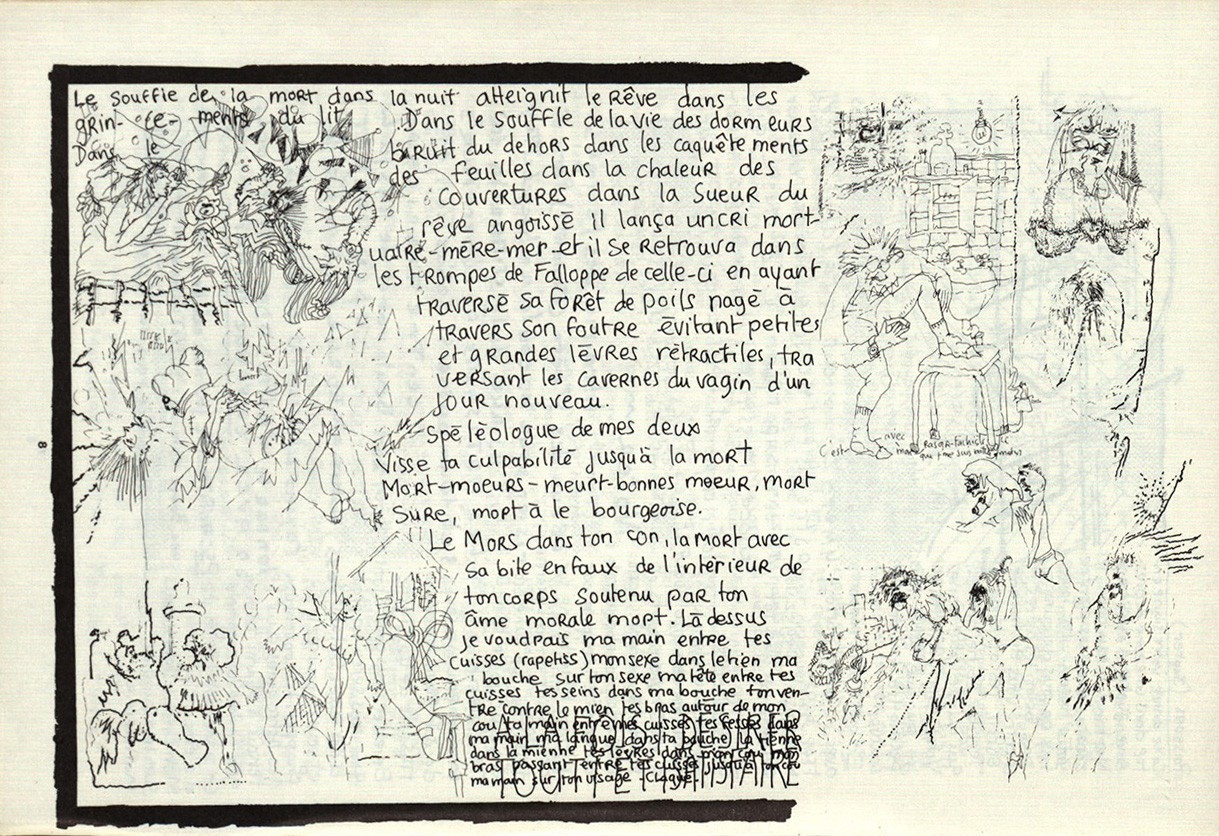 Le souffle de la mort dans la nuit atteignit le Rêve dans les
grin-ce-ments du lit. Dans le souffle de la vie des dormeurs
Dans le bruit du dehors dans les caquêtements
des feuilles dans la chaleur des
couvertures dans la sueur du
rêve angoissé il lança un cri mort-
uaire-mère-mer-et il se retrouva dans
les trompes de Falloppe de celle-ci en ayant
traversé sa forêt de poils nagé à
travers son foutre évitant petites
et grandes lèvres rétractiles, tra
versant les cavernes du vagin d'un
jour nouveau.
Spéléologue de mes deux
visse ta culpabilité jusqu'à la mort
Mort-moeurs-meurt-bonnes moeur, mort
sure, mort à le bourgeoise.
Le Mors dans ton con, la mort avec
sa bite en faux de l'intérieur de
ton corps soutenu par ton
âme morale mort. Là dessus
je voudrais ma main entre tes
cuisses (rapetiss) mon sexe dans le tien ma
bouche sur ton sexe ma tête entre tes
cuisses tes seins dans ma bouche ton ven-
tre contre le mien tes bras autour de mon
cou ta main entre mes cuisses tes fesses dans
ma main ma langue dans ta bouche la tienne
dans la mienne tes lèvres dans mon cou mon
bras passant entre tes cuisses jusqu'à ton cou
ma main sur ton visage claque
c'est avec
8